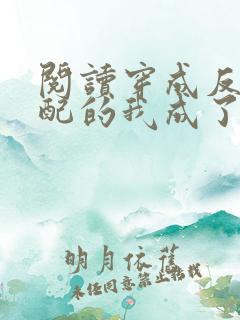 閱讀穿成反
配的我成了
明月依舊
未經同意禁止轉載